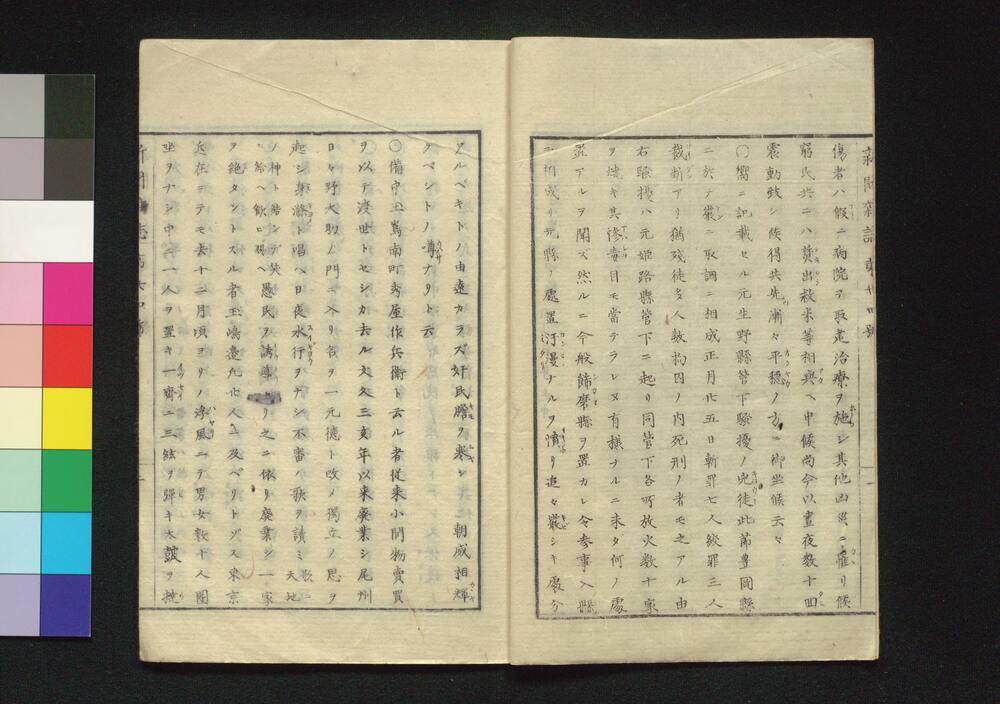 傷者ハ假ニ病院ヲ取建治療ヲ施シ其他凶災ニ罹リ候
窮民共ニハ貸出救米等相與ヘ申候尚今以晝夜数十回
震動致シ候得共先漸々平穏ノ方ニ御坐候云々
〇嚮ニ記載セル元生野縣管下騒擾ノ兇徒此節豊岡縣
ニ於テ嚴ニ取調ニ相成正月廿五日斬罪七人絞罪三人
裁断アリ猶残徒多人数拘囚ノ内死刑ノ者モ之アル由
右騒擾ハ元姫路縣管下ニ起リ同管下各所放火数十家
ヲ焼キ其惨毒目モ當テラレヌ有様ナルニ未タ何ノ處
置アルヲ聞ズ然ルニ今般飾磨縣ヲ置カレ令参事入縣
相成リ元縣ノ處置汙漫ナルヲ憤リ追々嚴シキ處分
アルベキトノ由遠カラズ奸民膽ヲ寒シ 朝威相輝
クベシトノ専ナリト云
〇備中玉嶌南町秀屋作兵衛ト云ル者従来小間物賣買
ヲ以テ渡世トセシカ去ル文久三亥年以来廃業シ尾州
日々野大助ノ門ニ入リ名ヲ一元徳ト改メ獨立ノ思ヲ
起シ ト唱ヘ日夜水行ヲナシ不審ノ歌ヲ讀ミ 歌ニ天地
ノ神ト ヘ愚民ヲ誘導セリ之ニ依リ廃業シ一家
ヲ絶タントスル者玉嶋邊凡廿人ニ及ベリトゾ又東京
近在ニテモ去十二月頃ヨリノ浮風ニテ男女数十人圏
坐ヲナシ中ニ一人ヲ置キ一齊ニ三絃ヲ弾キ太鼓ヲ